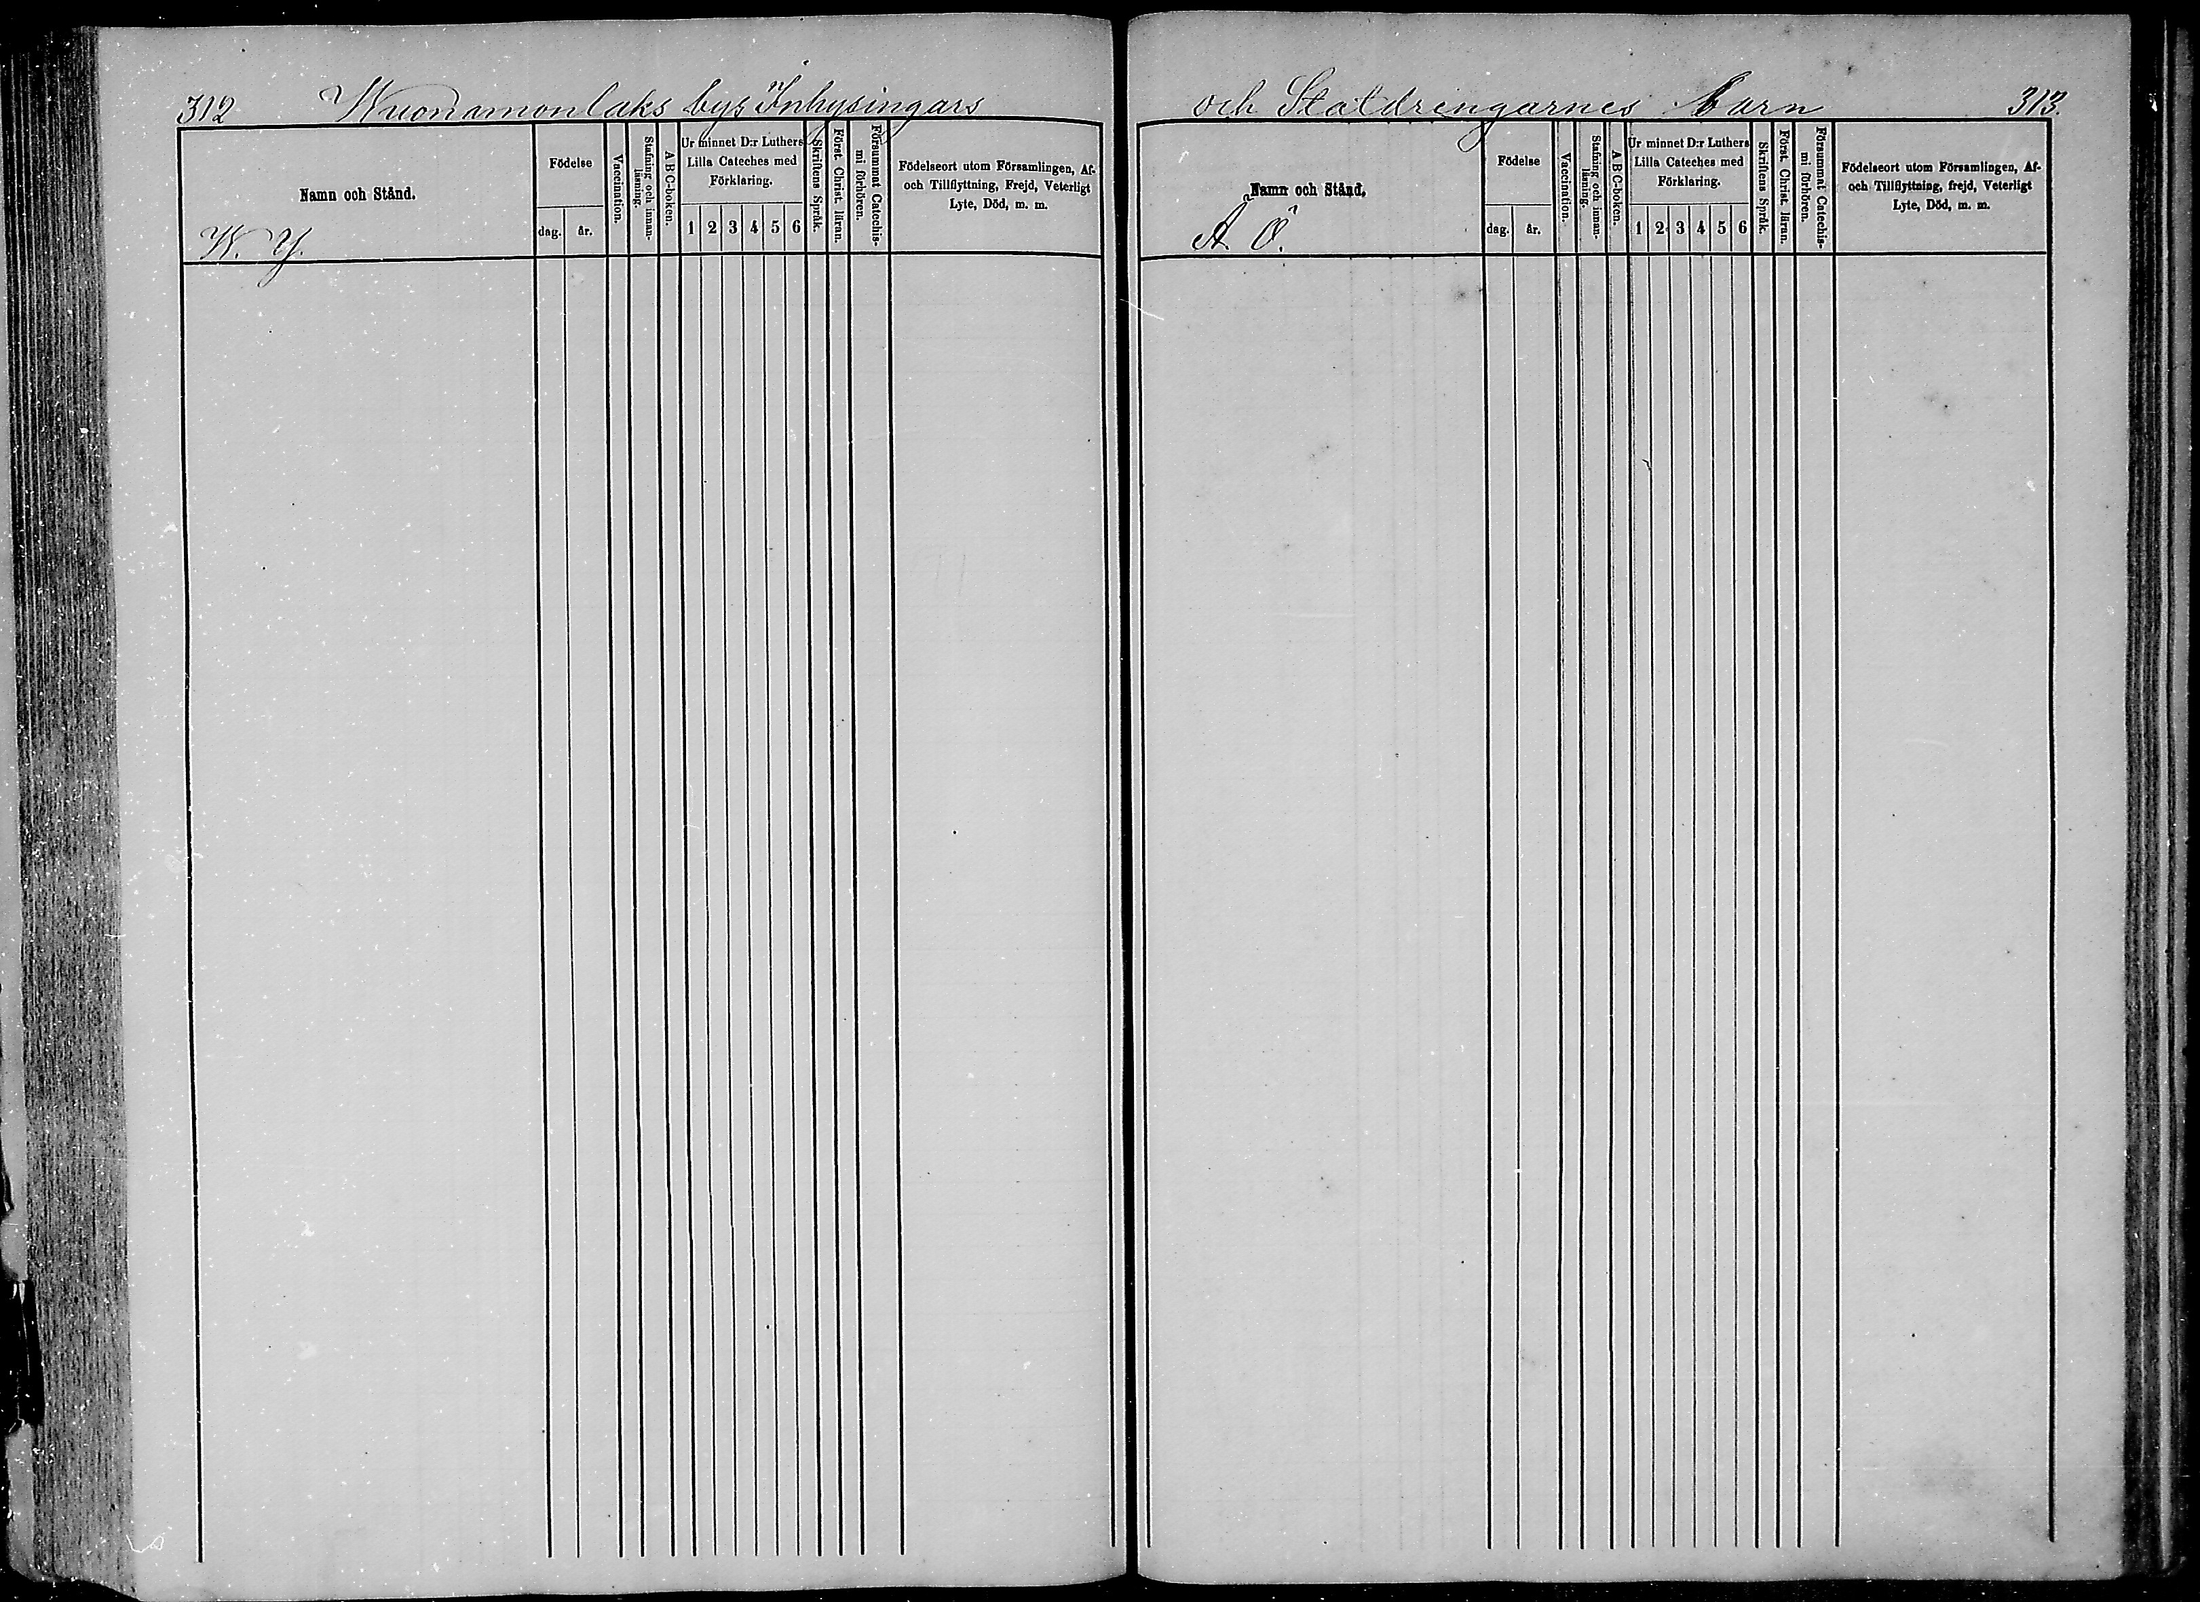 312 Wuonamonlaks bys Inhysingars
Namn och Stånd.
W. Y.
Födelse
dag. år.
Vaccination.
Stafning och innan-
läsning.
A B C-boken.
Ur minnet D:r Luthers
Lilla Cateches med
Förklaring.
1 2 3 4 5 6
Skriftens Språk.
Först. Christ. läran.
Försummat Catechis-
mi förhören.
Födelseort utom Församlingen, Af-
och Tillflyttning, Frejd, Veterligt
Lyte, Död, m. m.
och Statdrengarnes barn 313.
Namn och Stånd,
Å. Ö.
Födelse
dag. år.
Vaccination.
Stafning och innan-
läsning.
A B C-boken.
Ur minnet D:r Luthers
Lilla Cateches med
Förklaring.
1 2 3 4 5 6
Skriftens Språk.
Först. Christ. läran.
Försummat Catechis-
mi förhören.
Födelseort utom Församlingen, Af-
och Tillflyttning, frejd, Veterligt
Lyte, Död, m. m.